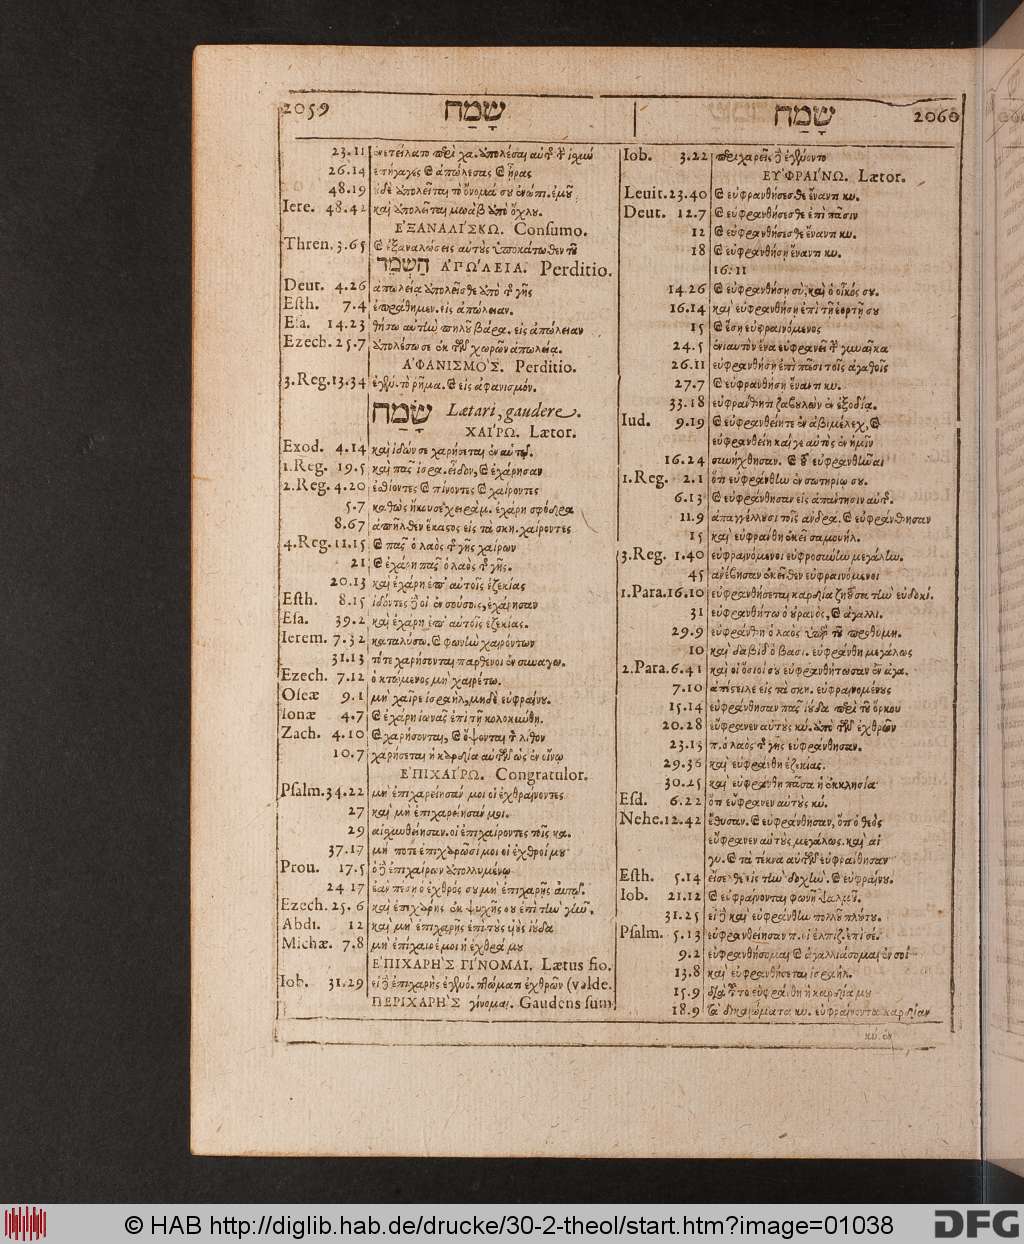 2059 שָׂמַח
שָׂמַח 2060
23.11 ἐνετείλατο
26.14 ἐπήγαγες ϗ ἀπώλεσας ϗ ἦρας
48.19 ἀπολεῖται τὸ ὄνομά σου
Iere. 48.42 καὶ ἀπολεῖται μωὰβ ἀπὸ ὄχλου.
ΕΞΑΝΑΛΙΣΚΩ. Consumo.
Thren. 3.65 ϗ ἐξαναλώσεις αὐτοὺς ὑποκάτωθεν τοῦ
הַשְׁמֵד ΑΠΩΛΕΙΑ. Perditio.
Deut. 4.26 ἀπωλείᾳ ἀπολεῖσθε ἀπὸ τῆς γῆς
Esth. 7.4 ἐπράθημεν. εἰς ἀπώλειαν.
Esa. 14.23 θήσω αὐτὴν πηλοῦ βάρα. εἰς ἀπώλειαν
Ezech. 25.7 ἀπολέσω σε ἐκ τῶν χωρῶν ἀπωλείᾳ.
ΑΦΑΝΙΣΜΟΣ. Perditio.
3. Reg. 13.34 τὸ ῥῆμα. ϗ εἰς ἀφανισμόν.
שָׂמַח Lætari, gaudere.
ΧΑΙΡΩ. Lætor.
Exod. 4.14 καὶ ἰδών σε χαρήσεται ἐν αὐτῷ.
1. Reg. 19.5 καὶ πᾶς ἰσρα. εἶδον, ϗ ἐχάρησαν
2. Reg. 4.20 ἐσθίοντες ϗ πίνοντες ϗ χαίροντες
5.7 καθὼς ἤκουσε χειράμ. ἐχάρη σφόδρα
8.67 ἀπῆλθεν ἕκαστος εἰς τὰ σκη. χαίροντες
4. Reg. 11.15 ϗ πᾶς ὁ λαὸς τῆς γῆς χαίρων
21 ϗ ἐχάρη πᾶς ὁ λαὸς τῆς γῆς.
20.13 καὶ ἐχάρη ἐπ' αὐτοῖς ἐζεκίας
Esth. 8.15 ἰδόντες δὲ οἱ ἐν σούσοις, ἐχάρησαν
Esa. 39.2 καὶ ἐχάρη ἐπ' αὐτοῖς ἐζεκίας.
Ierem. 7.32 καταλύσω. ϗ φωνὴν χαιρόντων
31.13 τότε χαρήσονται παρθένοι ἐν συναγω.
Ezech. 7.12 ὁ κτώμενος μὴ χαιρέτω.
Oseæ 9.1 μὴ χαῖρε ἰσραὴλ, μηδὲ εὐφραίνου.
Ionæ 4.7 ϗ ἐχάρη ἰωνᾶς ἐπὶ τῇ κολοκύνθῃ.
Zach. 4.10 ϗ χαρήσονται, ϗ ὄψονται τὸν λίθον
10.7 χαρήσεται ἡ καρδία αὐτῶν ὡς ἐν οἴνῳ
ΕΠΙΧΑΙΡΩ. Congratulor.
Psalm. 34.22 μὴ ἐπιχαρείησάν μοι οἱ ἐχθραίνοντες
27 καὶ μὴ ἐπιχαρείησάν μοι.
29 αἰσχυνθείησαν. οἱ ἐπιχαίροντες τοῖς κα.
37.17 μή ποτε ἐπιχαρῶσί μοι οἱ ἐχθροί μου
Prou. 17.5 ὁ δὲ ἐπιχαίρων ἀπολλυμένῳ
24.17 ἐὰν πέσῃ ὁ ἐχθρός σου μὴ ἐπιχαρῇς αὐτῷ.
Ezech. 25.6 καὶ ἐπέχαρης ἐκ ψυχῆς σου ἐπὶ τὴν γῆν.
Abdi. 12 καὶ μὴ ἐπιχαρῇς ἐπὶ τοὺς υἱοὺς ἰούδα
Michæ. 7.8 μὴ ἐπίχαιρέ μοι ἡ ἐχθρά μου
ΕΠΙΧΑΡΗΣ ΓΙΝΟΜΑΙ. Lætus fio.
Iob. 31.29 εἰ δὲ ἐπιχαρὴς πτώματι ἐχθρῶν (valde.
ΠΕΡΙΧΑΡΗΣ γίνομαι. Gaudens sum
Iob. 3.22 περιχαρεῖς δὲ ἐγένοντο
ΕΥΦΡΑΙΝΩ. Lætor.
Leuit. 23.40 ϗ εὐφρανθήσεσθε ἔναντι κυ.
Deut. 12.7 ϗ εὐφρανθήσεσθε ἐπὶ πᾶσιν
12 ϗ εὐφρανθήσεσθε ἔναντι κυ.
18 ϗ εὐφρανθήσῃ ἔναντι κυ.
16.11
14.26 ϗ εὐφρανθήσῃ σὺ, καὶ ὁ οἶκός σου.
16.14 καὶ εὐφρανθήσῃ ἐπὶ τῇ ἑορτῇ σου
15 ϗ ἔσῃ εὐφραινόμενος
24.5 ἐνιαυτὸν ἕνα εὐφρανεῖ τὴν γυναῖκα
26.11 εὐφρανθήσῃ ἐπὶ πᾶσι τοῖς ἀγαθοῖς
27.7 ϗ εὐφρανθήσῃ ἔναντι κυ.
33.18 εὐφράνθητι ζαβουλὼν ἐν ἐξοδίᾳ.
Iud. 9.19 ϗ εὐφρανθείητε ἐν ἀβιμέλεχ, ϗ
εὐφρανθείη καί γε αὐτὸς ἐν ὑμῖν
16.24 συνήχθησαν. ϗ τοῦ εὐφρανθῆναι
1. Reg. 2.1 ὅτι εὐφράνθην ἐν σωτηρίᾳ σου.
6.13 ϗ εὐφράνθησαν εἰς ἀπάντησιν αὐτῆς.
11.9 ἀπαγγέλλουσι τοῖς ἀνδρά. ϗ εὐφράνθησαν
15 καὶ εὐφράνθη ἐκεῖ σαμουήλ.
3. Reg. 1.40 εὐφραινόμενοι εὐφροσύνην μεγάλην.
45 ἀνέβησαν ἐκεῖθεν εὐφραινόμενοι
1. Para. 16.10 εὐφρανθήσεται καρδία ζητοῦσα τὴν εὐδοκί.
31 εὐφρανθήτω ὁ οὐρανὸς, ϗ ἀγαλλι.
29.9 εὐφράνθη ὁ λαὸς ὑπὲρ τοῦ προθυμη.
10 καὶ δαβὶδ ὁ βασι. εὐφράνθη μεγάλως
2. Para. 6.41 καὶ οἱ ὅσιοί σου εὐφρανθήτωσαν ἐν ἀγα.
7.10 ἀπέστειλε εἰς τὰ σκη. εὐφραινομένους
15.14 εὐφράνθησαν πᾶς ἰούδα περὶ τοῦ ὅρκου
20.28 εὔφρανεν αὐτοὺς κυ. ἀπὸ τῶν ἐχθρῶν
23.13 π. ὁ λαὸς τῆς γῆς εὐφράνθησαν.
29.36 καὶ εὐφράνθη ἐζεκίας.
30.25 καὶ εὐφράνθη πᾶσα ἡ ἐκκλησία
Esd. 6.22 ὅτι εὔφρανεν αὐτοὺς κύ.
Nehe. 12.42 ἔθυσαν. ϗ εὐφράνθησαν, ὅτι ὁ θεὸς
εὔφρανεν αὐτοὺς μεγάλως. καὶ αἱ
γυ. ϗ τὰ τέκνα αὐτῶν εὐφράνθησαν
Esth. 5.14 εἴσελθε εἰς τὴν δοχὴν. ϗ εὐφραίνου.
Iob. 21.12 ϗ εὐφραίνονται φωνῇ ψαλμοῦ.
31.25 εἰ δὲ καὶ εὐφράνθην πολλοῦ πλούτου.
Psalm. 5.13 εὐφρανθείησαν π. οἱ ἐλπίζ. ἐπὶ σέ.
9.2 εὐφρανθήσομαι ϗ ἀγαλλιάσομαι ἐν σοὶ
13.8 καὶ εὐφρανθήσεται ἰσραήλ.
15.9 διὰ τοῦτο εὐφράνθη ἡ καρδία μου
18.9 τὰ δικαιώματα κυ. εὐφραίνοντα καρδίαν
κύ. ἐν
© HAB http://diglib.hab.de/drucke/30-2-theol/start.htm?image=01038
DFG